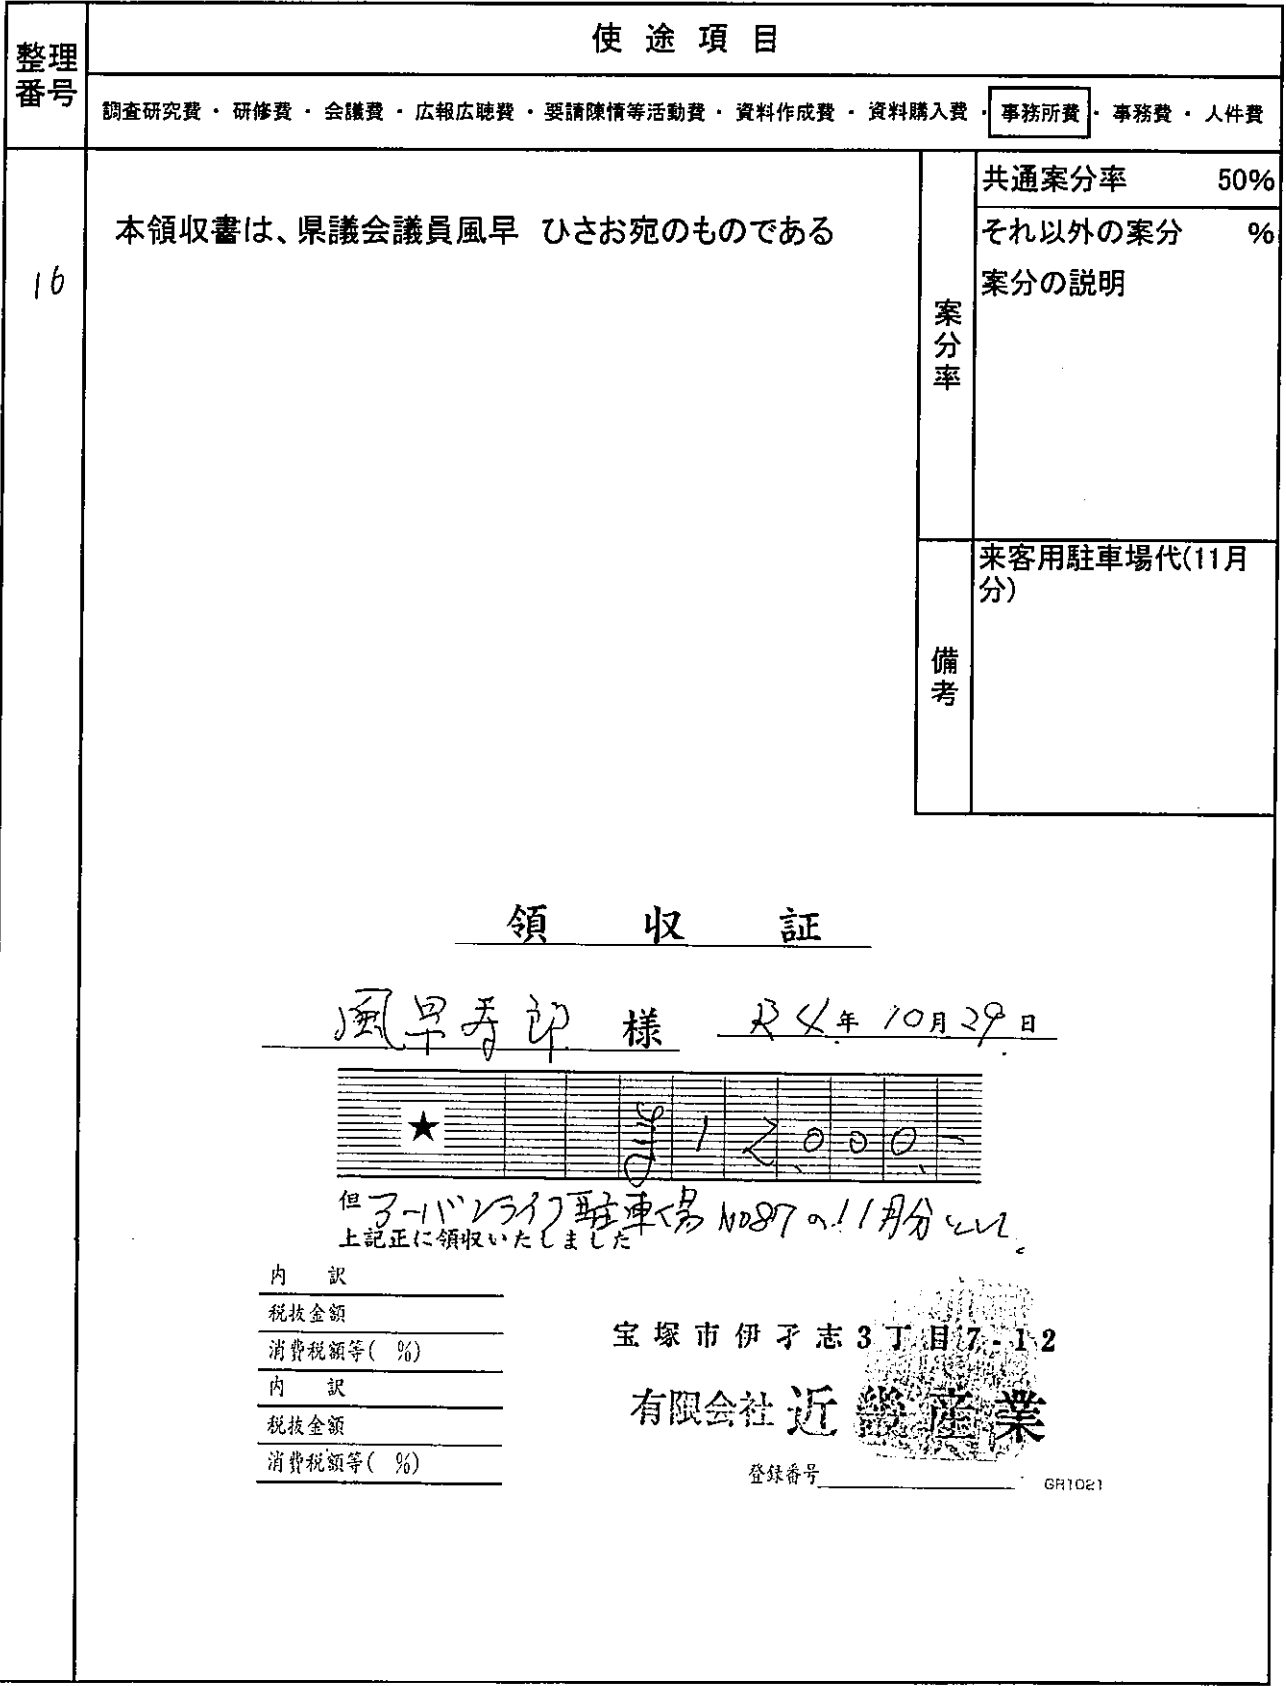 整理番号
使途項目
調査研究費・研修費・会議費・広報広聴費・要請陳情等活動費・資料作成費・資料購入費・事務所費・事務費・人件費
16
本領収書は、県議会議員風早 ひさお宛のものである
案分率
共通案分率 50%
それ以外の案分 %
案分の説明
備考
来客用駐車場代(11月
分)
領収証
風早寿郎 様 R4年10月29日
★ ¥12,000,-
但 アーバンライフ駐車場NO87の11月分として。
上記正に領収いたしました
内訳
税抜金額
消費税額等( %)
内訳
税抜金額
消費税額等( %)
宝塚市伊孑志3丁目7-12
有限会社 近畿産業
登録番号
GR1021